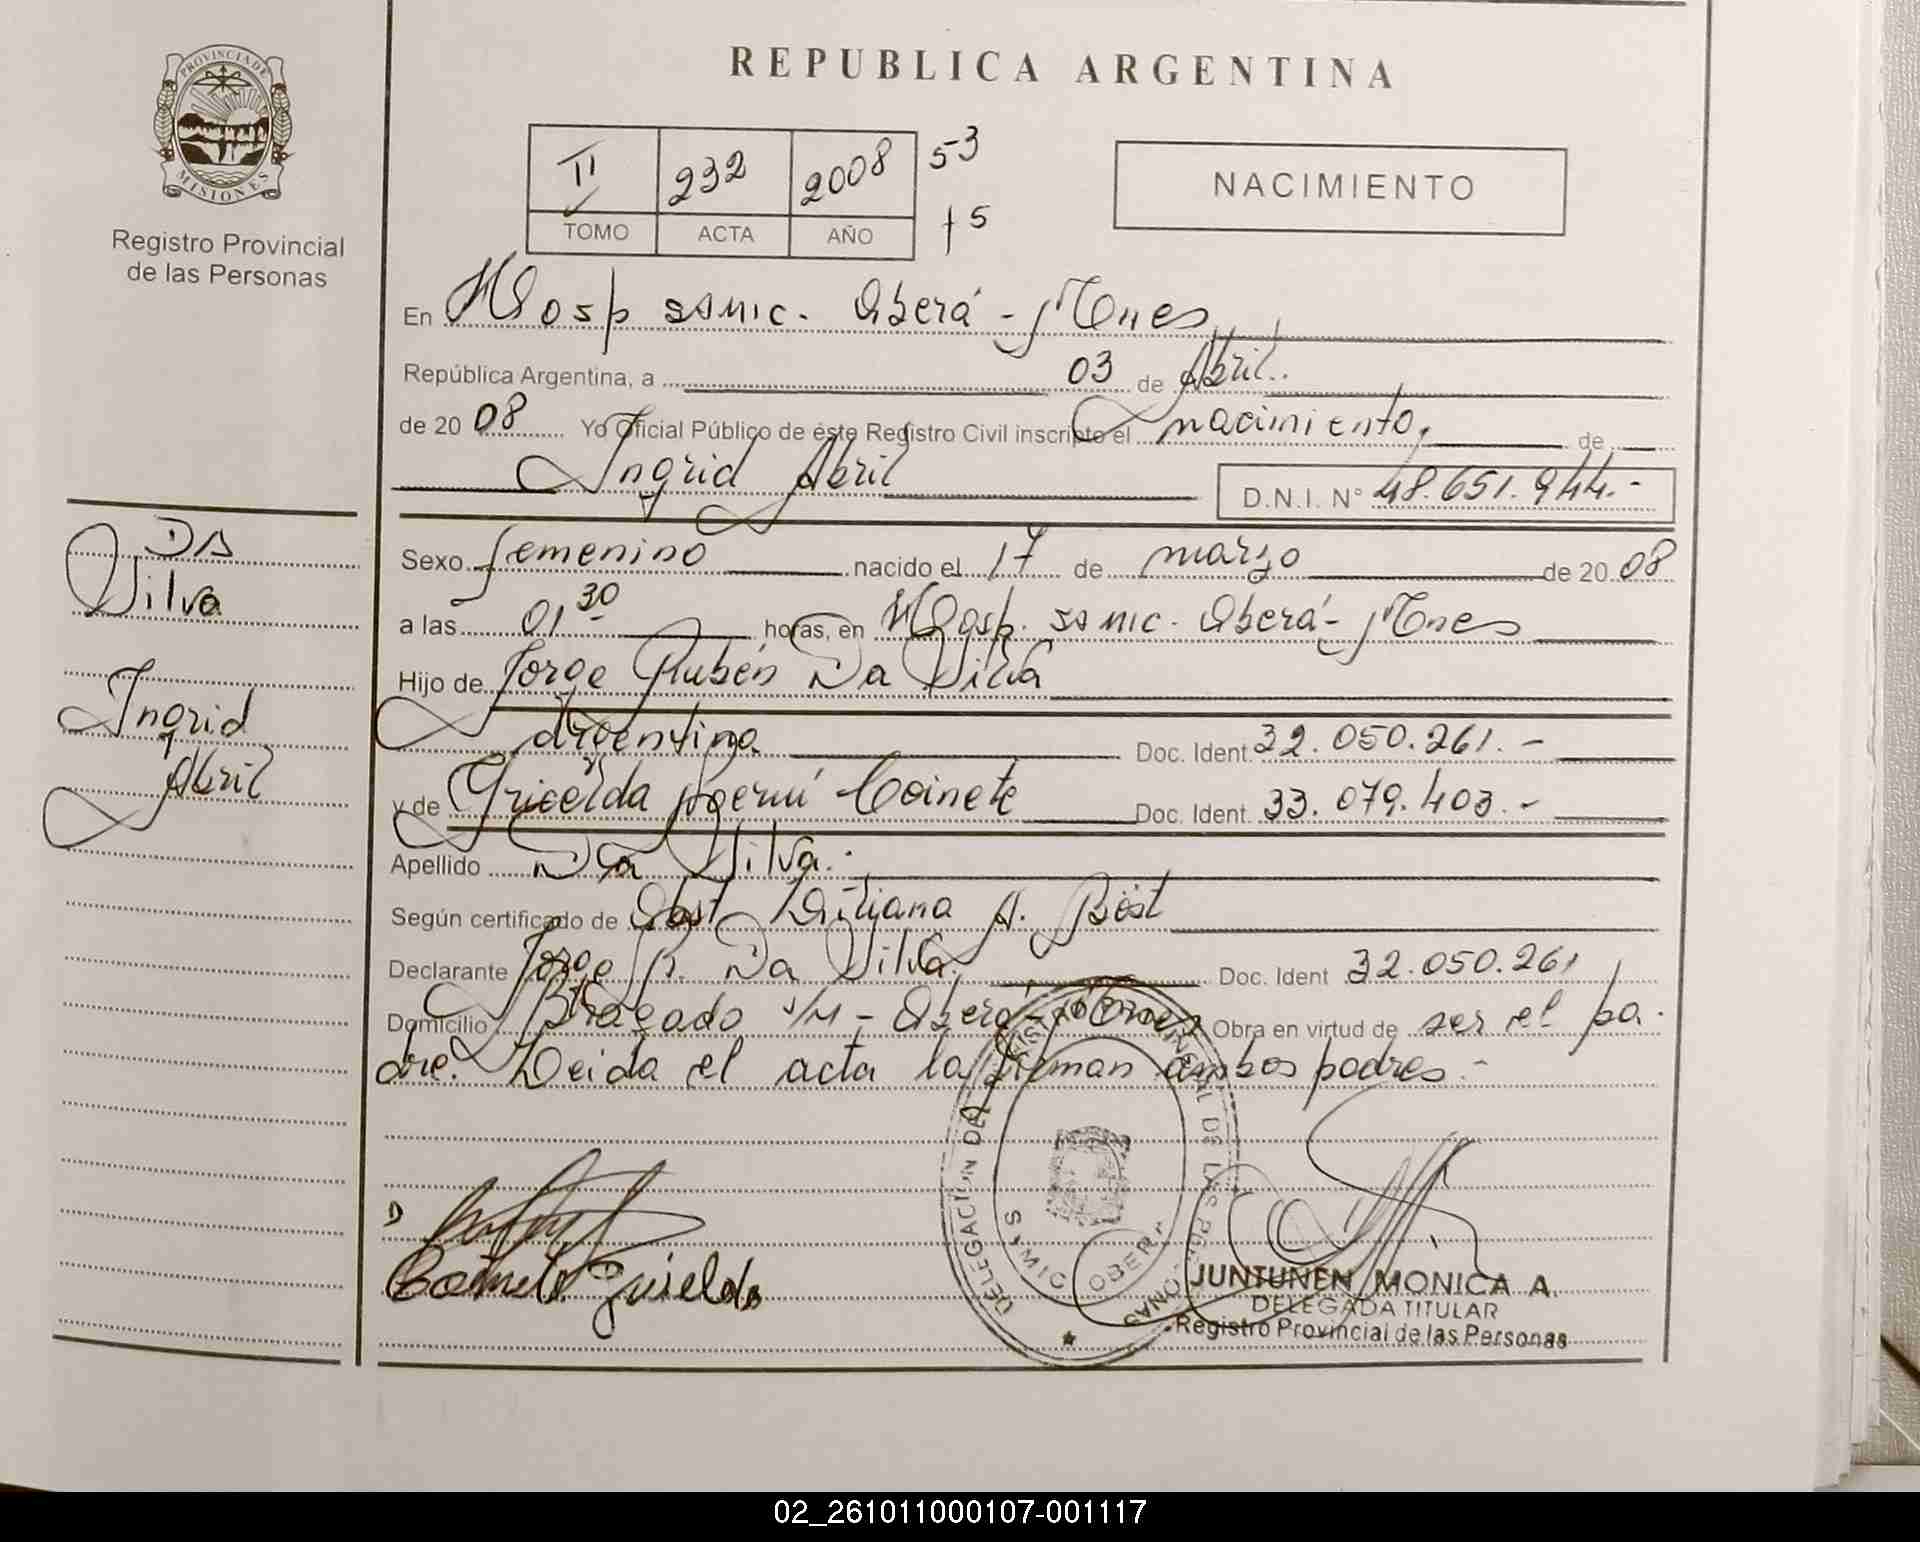 PROVINCIA DE
MISIONES
Registro Provincial
de las Personas
REPUBLICA ARGENTINA
II 232 2008 53
TOMO ACTA AÑO f 5
NACIMIENTO
En Hosp samic. Oberá - Mnes
República Argentina, a 03 de Abril.
de 20 08 Yo Oficial Público de éste Registro Civil inscripto el nacimiento, de
Ingrid Abril D.N.I. Nº 48.651.944.-
Da
Silva
Ingrid
Abril
Sexo femenino nacido el 17 de marzo de 20 08
a las 01 30 horas, en Hosp. samic. Oberá - Mnes
Hijo de Jorge Rubén Da Silva
argentina Doc. Ident. 32.050.261.-
y de Griselda Noemí Coinete Doc. Ident. 33.079.403.-
Apellido Da Silva.-
Según certificado de Obst A. Böst
Declarante Jorge R. Da Silva. Doc. Ident 32.050.261
Domicilio Bragado s/n - Oberá - Mnes Obra en virtud de ser el pa-
dre. Leida el acta la firman ambos padres.-
DELEGACION DEL REGISTRO PROVINCIAL DE LAS PERSONAS
SAMIC OBERA
Griselda
JUNTUNEN MONICA A.
DELEGADA TITULAR
Registro Provincial de las Personas
02_261011000107-001117